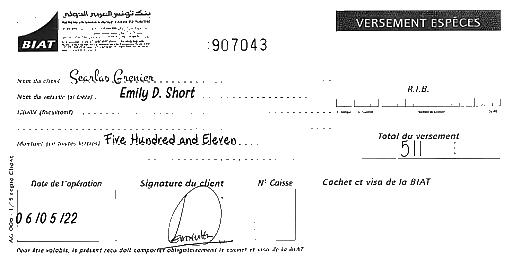 بنك تونس العربي الدولي
BIAT
VERSEMENT ESPÈCES
907043
Nom du client Searlas Grenier
Nom du verseur (si tiers) Emily D. Short
R.I.B.
Libellé (facultatif)
Montant (en toutes lettres) Five Hundred and Eleven
Total du versement
511
Date de l'opération
Signature du client
N° Caisse
Cachet et visa de la BIAT
06/05/22
Pour être valable, le présent reçu doit comporter obligatoirement le cachet et visa de la BIAT